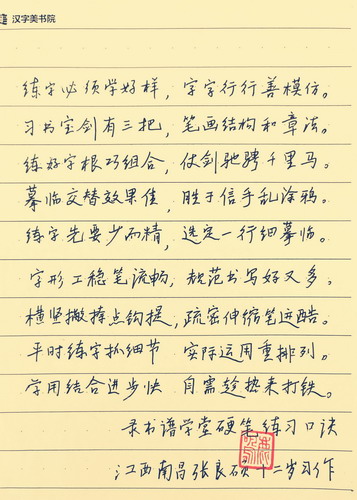 汉字美书院
练字必须学好样，字字行行善模仿。
习书宝剑有三把，笔画结构和章法。
练好字根巧组合，仗剑驰骋千里马。
摹临交替效果佳，胜于信手乱涂鸦。
练字先要少而精，选定一行细摹临。
字形工稳笔流畅，规范书写好又多。
横竖撇捺点钩提，疏密伸缩笔运酷。
平时练字抓细节 实际运用重排列。
学用结合进步快 自需趁热来打铁。
录书谱学堂硬笔练习口诀
江西南昌张良硕十二岁习作